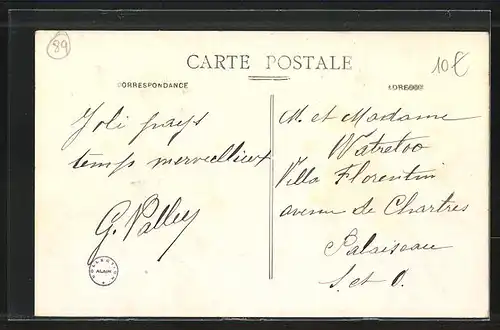 89
CARTE POSTALE
10€
CORRESPONDANCE
ADRESSE
Joli pays
temps merveilleux
G. Valley
COLLECTION
ALAIN
M. et Madame
Watretoo
Villa Florentin
avenue de Chartres
Palaiseau
S. et O.